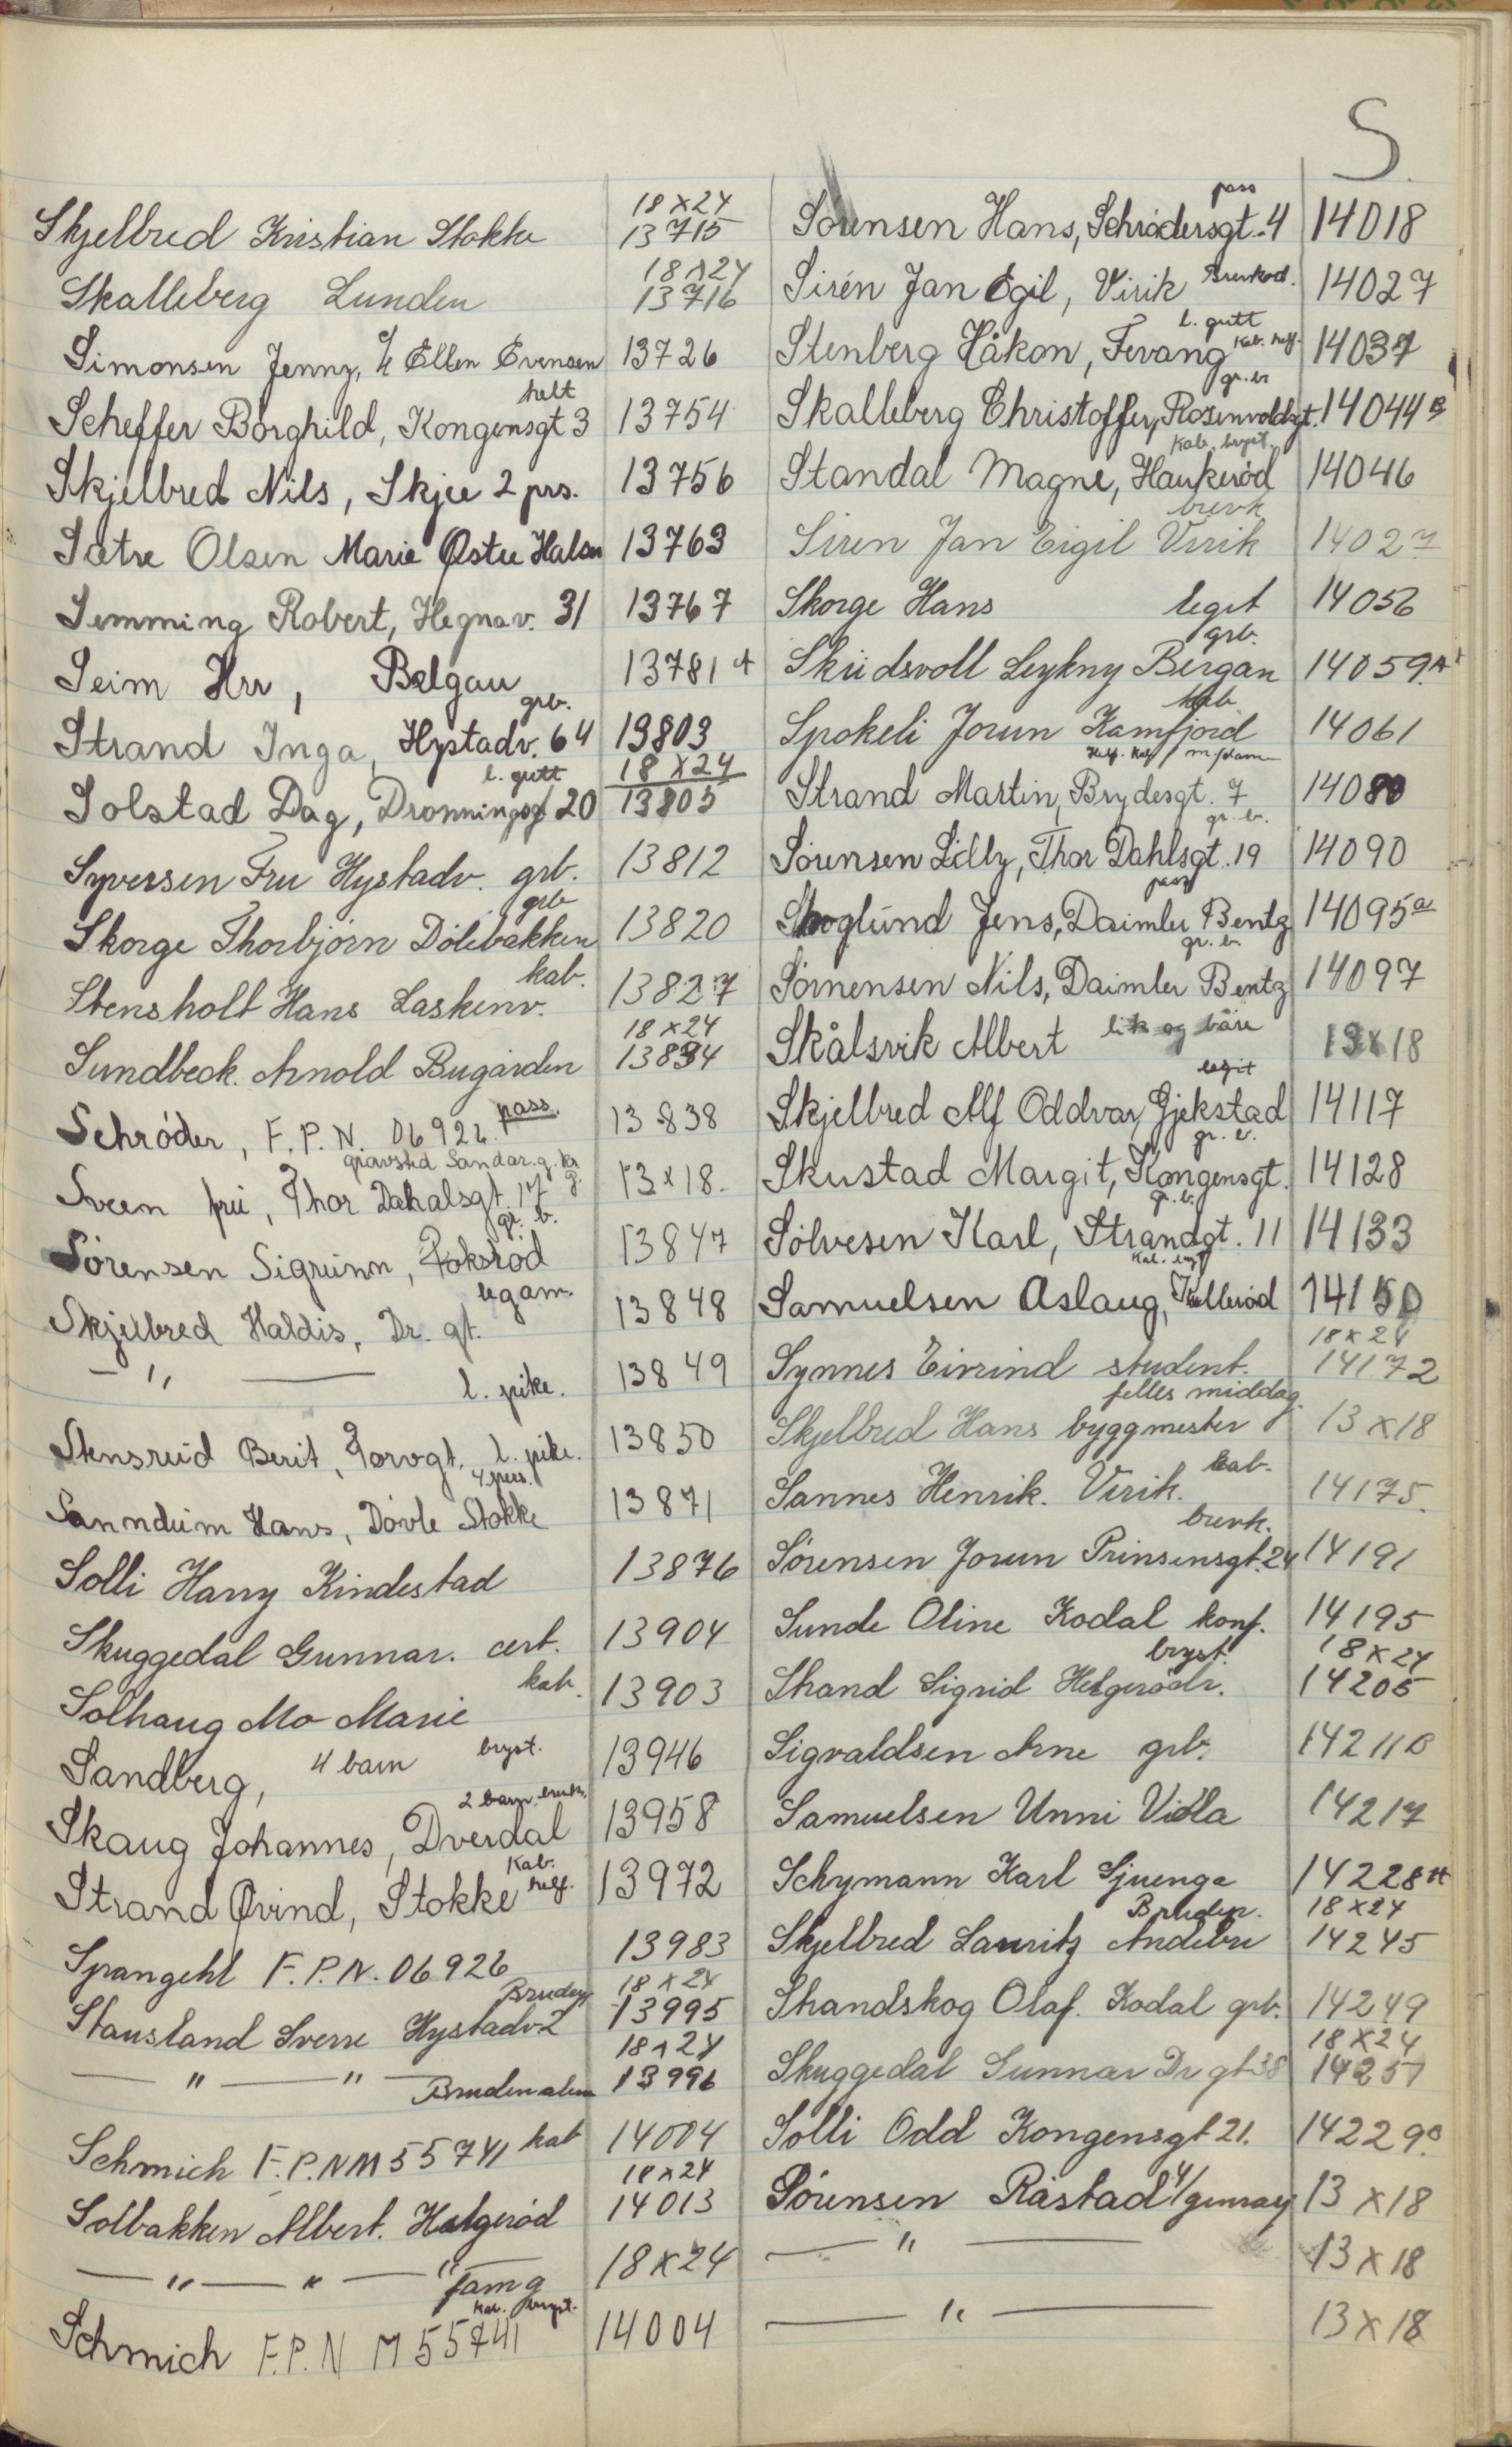 S.
18 x 24
Skjelbred Kristian Stokke 13715
18 x 24
Skalleberg Lunden 13716
Simonsen Jenny, Ellen Evensen 13726
helt
Scheffer Borghild, Kongensgt 3 13754
Skjelbred Nils, Skjee 2 prs. 13756
Sætre Olsen Marie Østre Halsen 13763
Semming Robert, Hegnav. 31 13767
Seim Hrr, Belgau 13781 A
grb.
Strand Inga, Hystadv. 64 13803
l. gutt 18 x 24
Solstad Dag, Dronningsgt 20 13805
Syversen Fru Hystadv. grb. 13812
grb
Skorge Thorbjørn Dölebakken 13820
kab.
Stensholt Hans Laskenv. 13827
18 x 24
Sundbeck. Arnold Bugården 13834
pass.
Schrôder, F.P.N. 06926 13838
gravsted Sandar. g. kr g.
Sveen frú, Thor Dahalsgt. 17 13 x 18.
gr. b.
Sørensen Sigrünn, Roksrød 13847
legam.
Skjelbred Haldis, Dr. gt. 13848
— " — l. pike. 13849
Stensrúd Berit, Torvgt. l. pike. 13850
4 pers.
Sanndúm Hans, Døvle Stokke 13871
Solli Harry Kindestad 13876
Skuggedal Gunnar. cert. 13904
kab.
Solhaug Mo Marie 13903
Sandberg, 4 barn bryst. 13946
2 barn. brevk.
Skaug Johannes, Dverdal 13958
Kab. helf.
Strand Øvind, Stokke 13972
Spangehl F.P.N. 06926 13983
Brudep. 18 x 24
Stausland Sverre Hystadv 2 13995
18 x 24
— " — " — Bruden alene 13996
Schmich F.P.N M 55741 kab 14004
18 x 24
Solbakken Albert. Helgerød 14013
— " — " — " — fam g 18 x 24
kab. bryst.
Schmich F.P.N M 55741 14004
pass
Sørensen Hans, Schrôdersgt. 4 14018
Sirén Jan Egil, Virik Brevkod. 14027
l. gutt
Stenberg Håkon, Fevang Kab. helf. 14037
gr. br
Skalleberg Christoffer, Rosenvoldsgt. 14044 B
Kab. bryst.
Standal Magne, Haukerød 14046
brevk
Siren Jan Eigil Virik 14027
Skorge Hans legit 14056
grb.
Skúdsvoll Leykny Bergan 14059 A
kab
Spokeli Jorun Kamfjord 14061
Helf. Kab m/dame
Strand Martin, Brydesgt. 7 14080
gr. b.
Sørensen Lilly, Thor Dahlsgt. 19 14090
pass
Skoglúnd Jens, Daimler Bentz 14095 a
gr. b.
Sørnensen Nils, Daimler Bentz 14097
Skålsvik Albert lik og båre 13x18
legit
Skjelbred Alf Oddvar, Gjekstad 14117
gr. b.
Skustad Margit, Kongensgt. 14128
gr. b.
Sølvesen Karl, Strandgt. 11 14133
Kab. bryst
Samuelsen Aslaug, 14150
18 x 24
Synnes Eivind student. 14172
felles middag.
Skjelbred Hans byggmester 13 x 18
kab.
Sannes Henrik. Virik. 14175.
brevk.
Sørensen Jorun Prinsensgt. 24 14191
Sunde Oline Kodal konf. 14195
bryst. 18 x 24
Strand Sigrid Helgerødv. 14205
Sigvaldsen Arne grb. 14211 B
Samuelsen Unni Vidla 14217
Schymann Karl Sjuenga 14228 A
Brudep. 18 x 24
Skjelbred Lauritz Andebu 14245
Strandskog Olaf. Kodal grb. 14249
18 x 24
Skuggedal Gunnar Dr gt 38 14257
Solli Odd Kongensgt 21. 14229 B
Sørensen Råstad 13 x 18
— " — 13 x 18
— " — 13 x 18